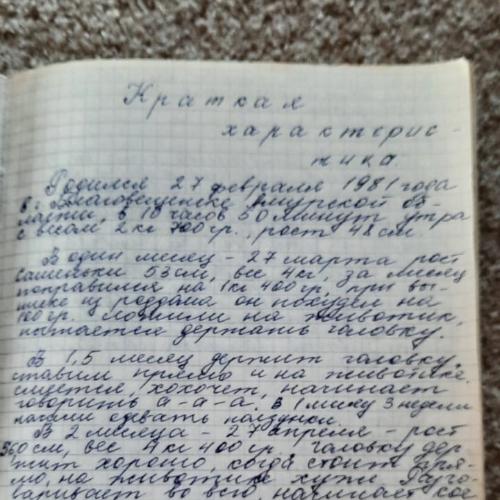 Краткая
характерис-
тика
Родился 27 февраля 1981 года
в г. Благовещенске Амурской об-
ласти, в 10 часов 50 минут утра
с весом 2 кг 700 гр., рост 48 см
В один месяц - 27 марта рост
Сашеньки 53 см, вес 4 кг, за месяц
поправился на 1 кг 400 гр, при вы-
писке из роддома он похудел на
100 гр. Ложили на животик,
пытается держать головку.
В 1,5 месяц держит головку,
ставим прямо и на животике.
смеётся, хохочет, начинает
говорить а-а-а. В 1 месяц 3 недели
начали одевать ползунки.
В 2 месяца - 27 апреля - рост
560 см, вес 4 кг 400 гр, головку дер-
жит хорошо, когда стоит пря-
мо, на животике хуже. Разго-
варивает во всю, все